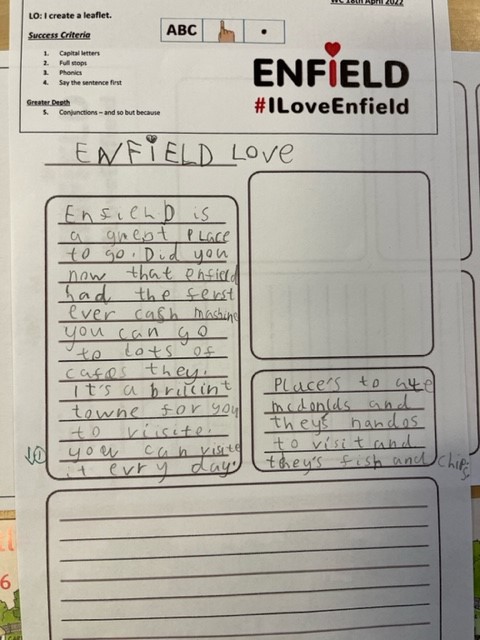 WC 18th April 2022
LO: I create a leaflet.
Success Criteria
1. Capital letters
2. Full stops
3. Phonics
4. Say the sentence first
Greater Depth
5. Conjunctions – and so but because
ABC
ENFIELD
#ILoveEnfield
ENFiELD LOVE
Enfield is
a great PLace
to go. Did you
now that enfield
had the ferst
ever cash mashine
you can go
to lots of
cafes they.
It's a brilint
towne for you
to viisite.
you can visite
it evry day.
PLacers to ate
mcdonlds and
theys nandos
to visit and
they's fish and chips.
6